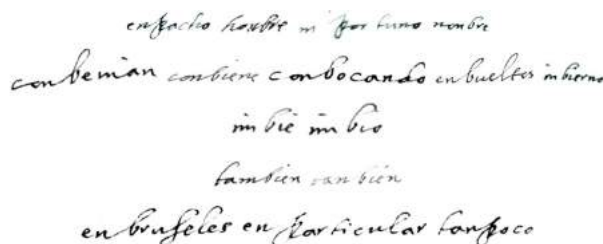 enpacho honbre inportuno nonbre
conbenian conbiene conbocando enbueltos inbierno
inbie inbio
tambien tanbien
en bruseles en particular tanpoco